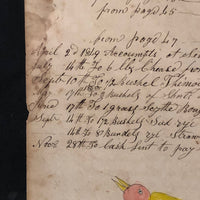 from page 45
from page 47
April 2d 1849 Accounts at
July 14th To 6 lb Cheese from
Sept 10th To 1/2 Bushel Timo
Apr 17th To 2 Bushels of
June 17th To 1 grass Scythe
Sept 14th To 1/2 Bushels Seed rye
14th To 8 Bundels rye Straw
Nov 28th To Cash sent to pay